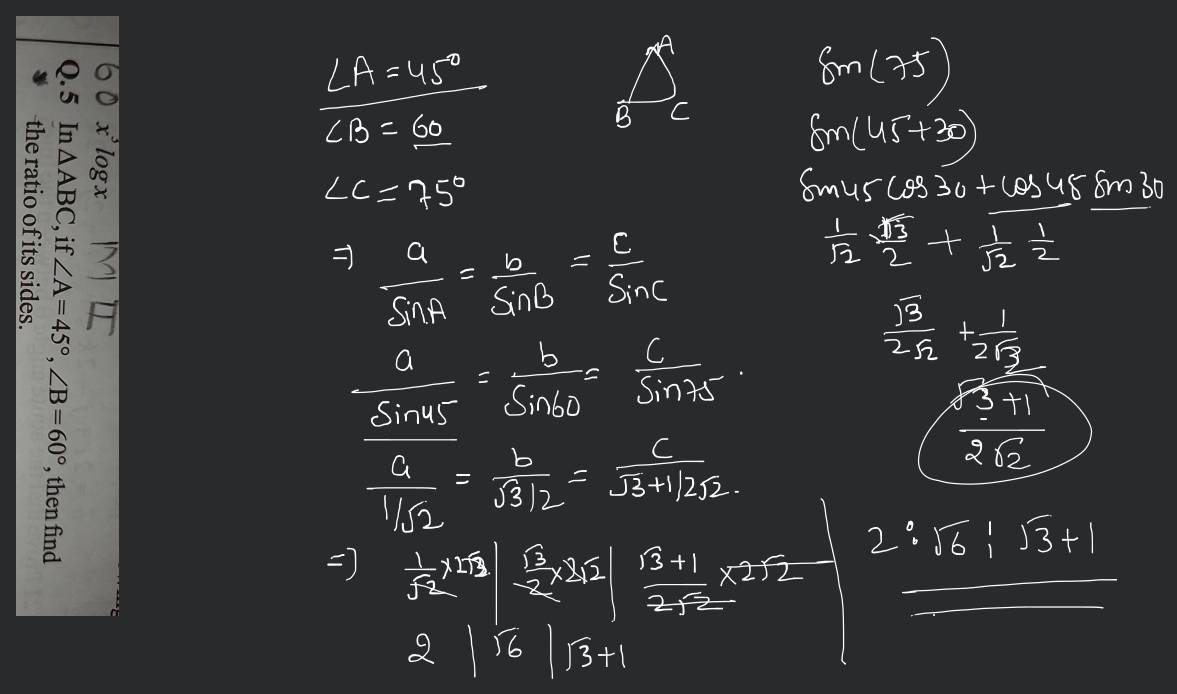 60 x³ log x M II
Q.5 In △ABC, if ∠A=45°, ∠B=60°, then find
the ratio of its sides.
∠A = 45°
∠B = 60
∠C = 75°
A
B C
⇒ a/SinA = b/SinB = C/SinC
a/Sin45 = b/Sin60 = C/Sin75.
a/1/√2 = b/√3/2 = C/√3+1/2√2.
⇒) 1/√2 × 2√2 | √3/2 × 2√2 | √3+1/2√2 × 2√2
2 | √6 | √3+1
Sin(75)
Sin(45+30)
Sin45 Cos30 + Cos45 Sin30
1/√2 √3/2 + 1/√2 1/2
√3/2√2 + 1/2√2
√3+1/2√2
2 : √6 : √3+1